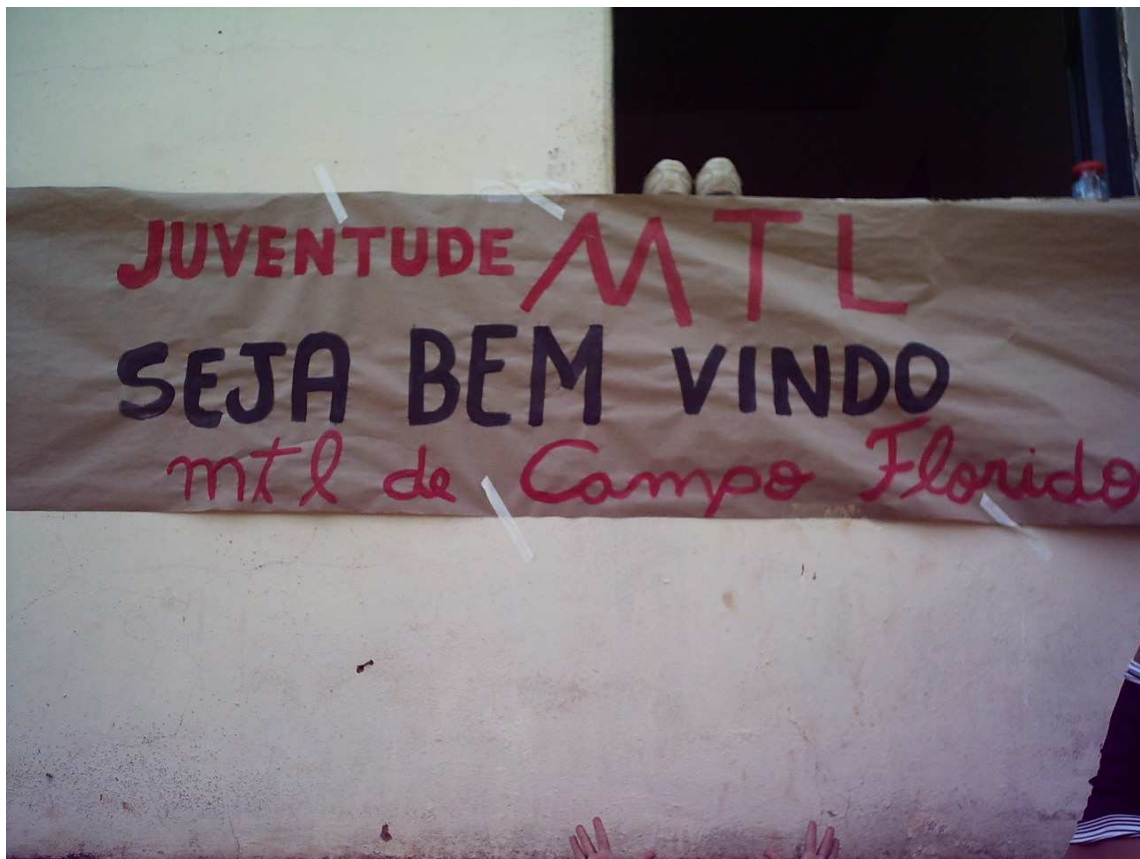 JUVENTUDE MTL
SEJA BEM VINDO
mtl de Campo Florido